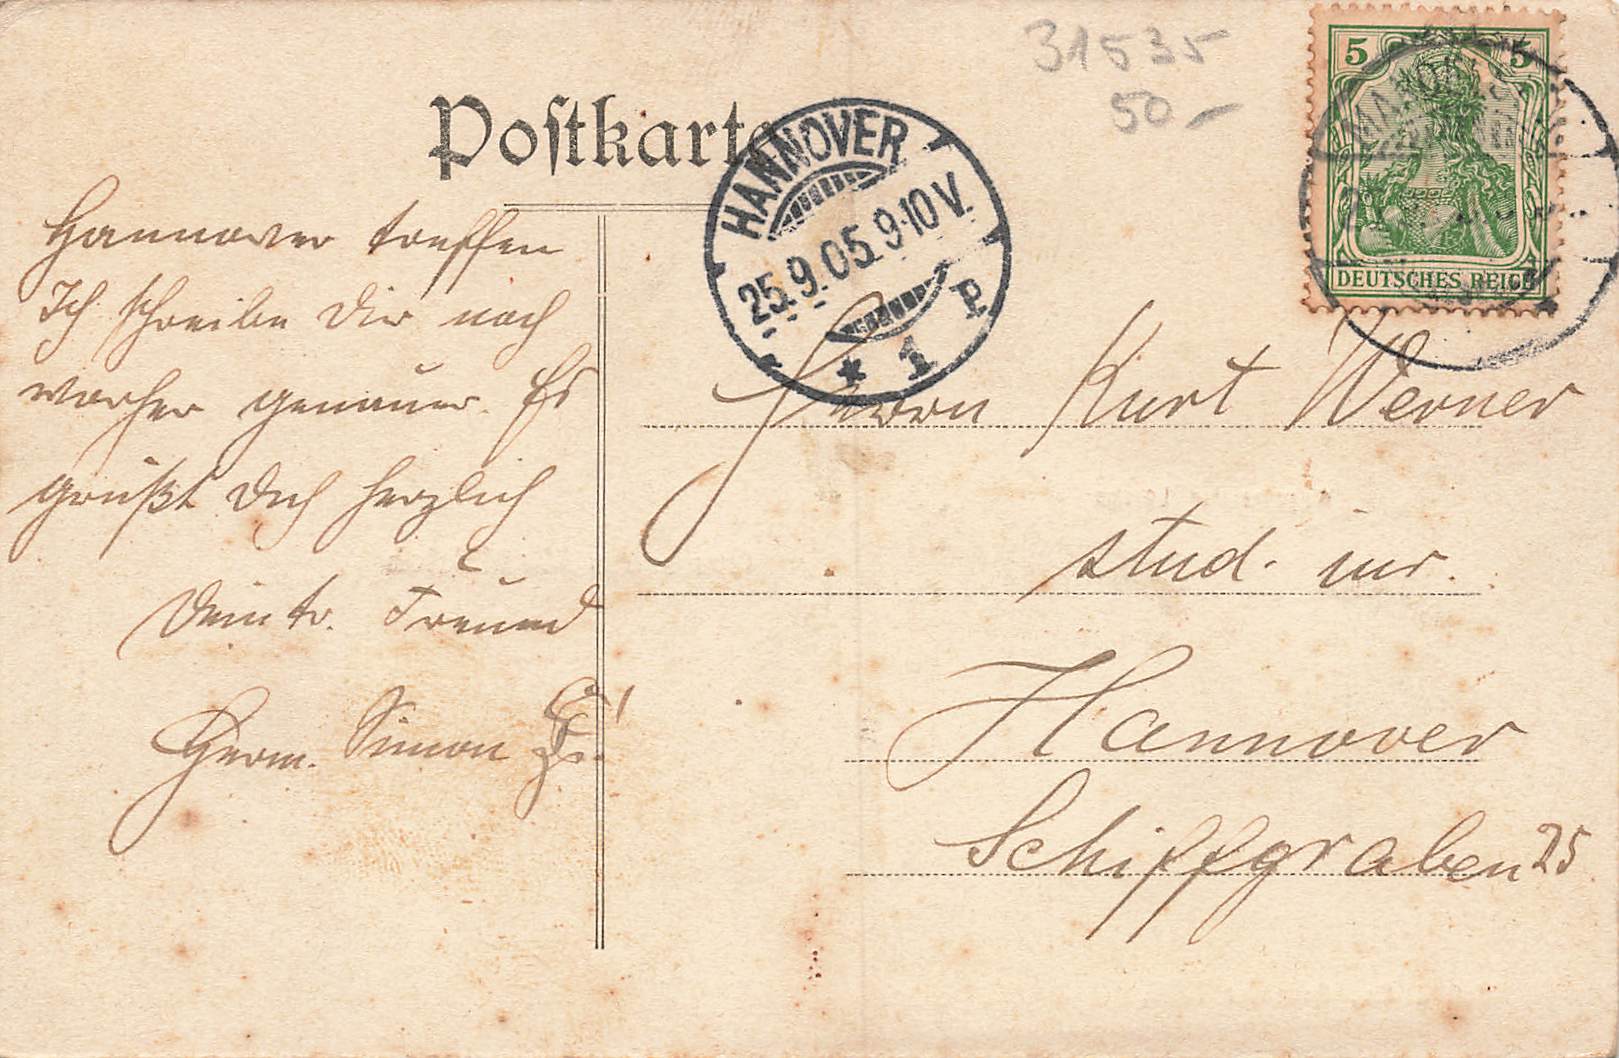 31535
50.-
5 5
DEUTSCHES REICH
Postkarte
HANNOVER
25.9.05. 9-10 V.
* 1 P. *
Hannover treffen
Ich schreibe Dir noch
vorher genauer. Es
grüßt Dich herzlich
Dein tr. Freund
Herm. Simon
Herrn Kurt Werner
stud. iur.
Hannover
Schiffgraben 25